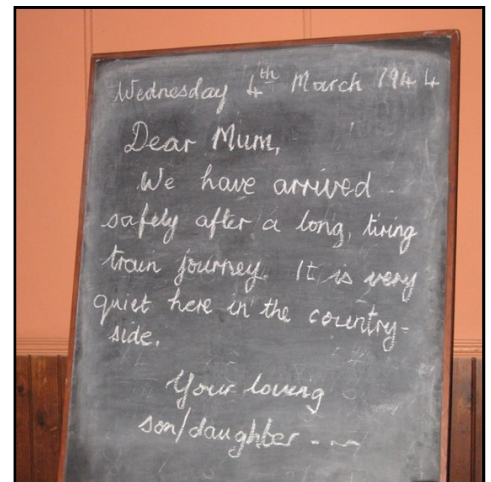 Wednesday 4th March 1944
Dear Mum,
We have arrived
safely after a long, tiring
train journey. It is very
quiet here in the country-
side.
Your loving
son/daughter - - ~